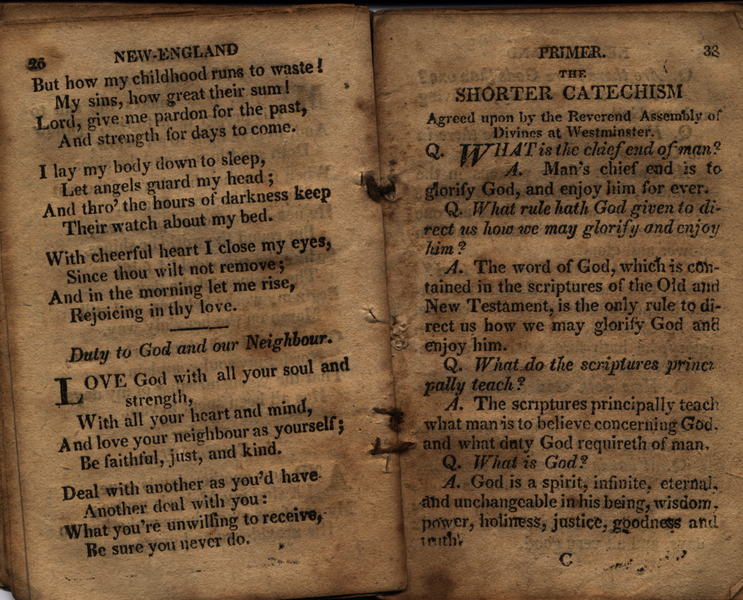 26 NEW-ENGLAND
But how my childhood runs to waste!
My sins, how great their sum!
Lord, give me pardon for the past,
And strength for days to come.
I lay my body down to sleep,
Let angels guard my head;
And thro' the hours of darkness keep
Their watch about my bed.
With cheerful heart I close my eyes,
Since thou wilt not remove;
And in the morning let me rise,
Rejoicing in thy love.
Duty to God and our Neighbour.
LOVE God with all your soul and
strength,
With all your heart and mind,
And love your neighbour as yourself;
Be faithful, just, and kind.
Deal with another as you'd have
Another deal with you:
What you're unwilling to receive,
Be sure you never do.
PRIMER. 33
THE
SHORTER CATECHISM
Agreed upon by the Reverend Assembly of
Divines at Westminster.
Q. WHAT is the chief end of man?
A. Man's chief end is to
glorify God, and enjoy him for ever.
Q. What rule hath God given to di-
rect us how we may glorify and enjoy
him?
A. The word of God, which is con-
tained in the scriptures of the Old and
New Testament, is the only rule to di-
rect us how we may glorify God and
enjoy him.
Q. What do the scriptures princi
pally teach?
A. The scriptures principally teach
what man is to believe concerning God,
and what duty God requireth of man.
Q. What is God?
A. God is a spirit, infinite, eternal,
and unchangeable in his being, wisdom,
power, holiness, justice, goodness and
truth.
C